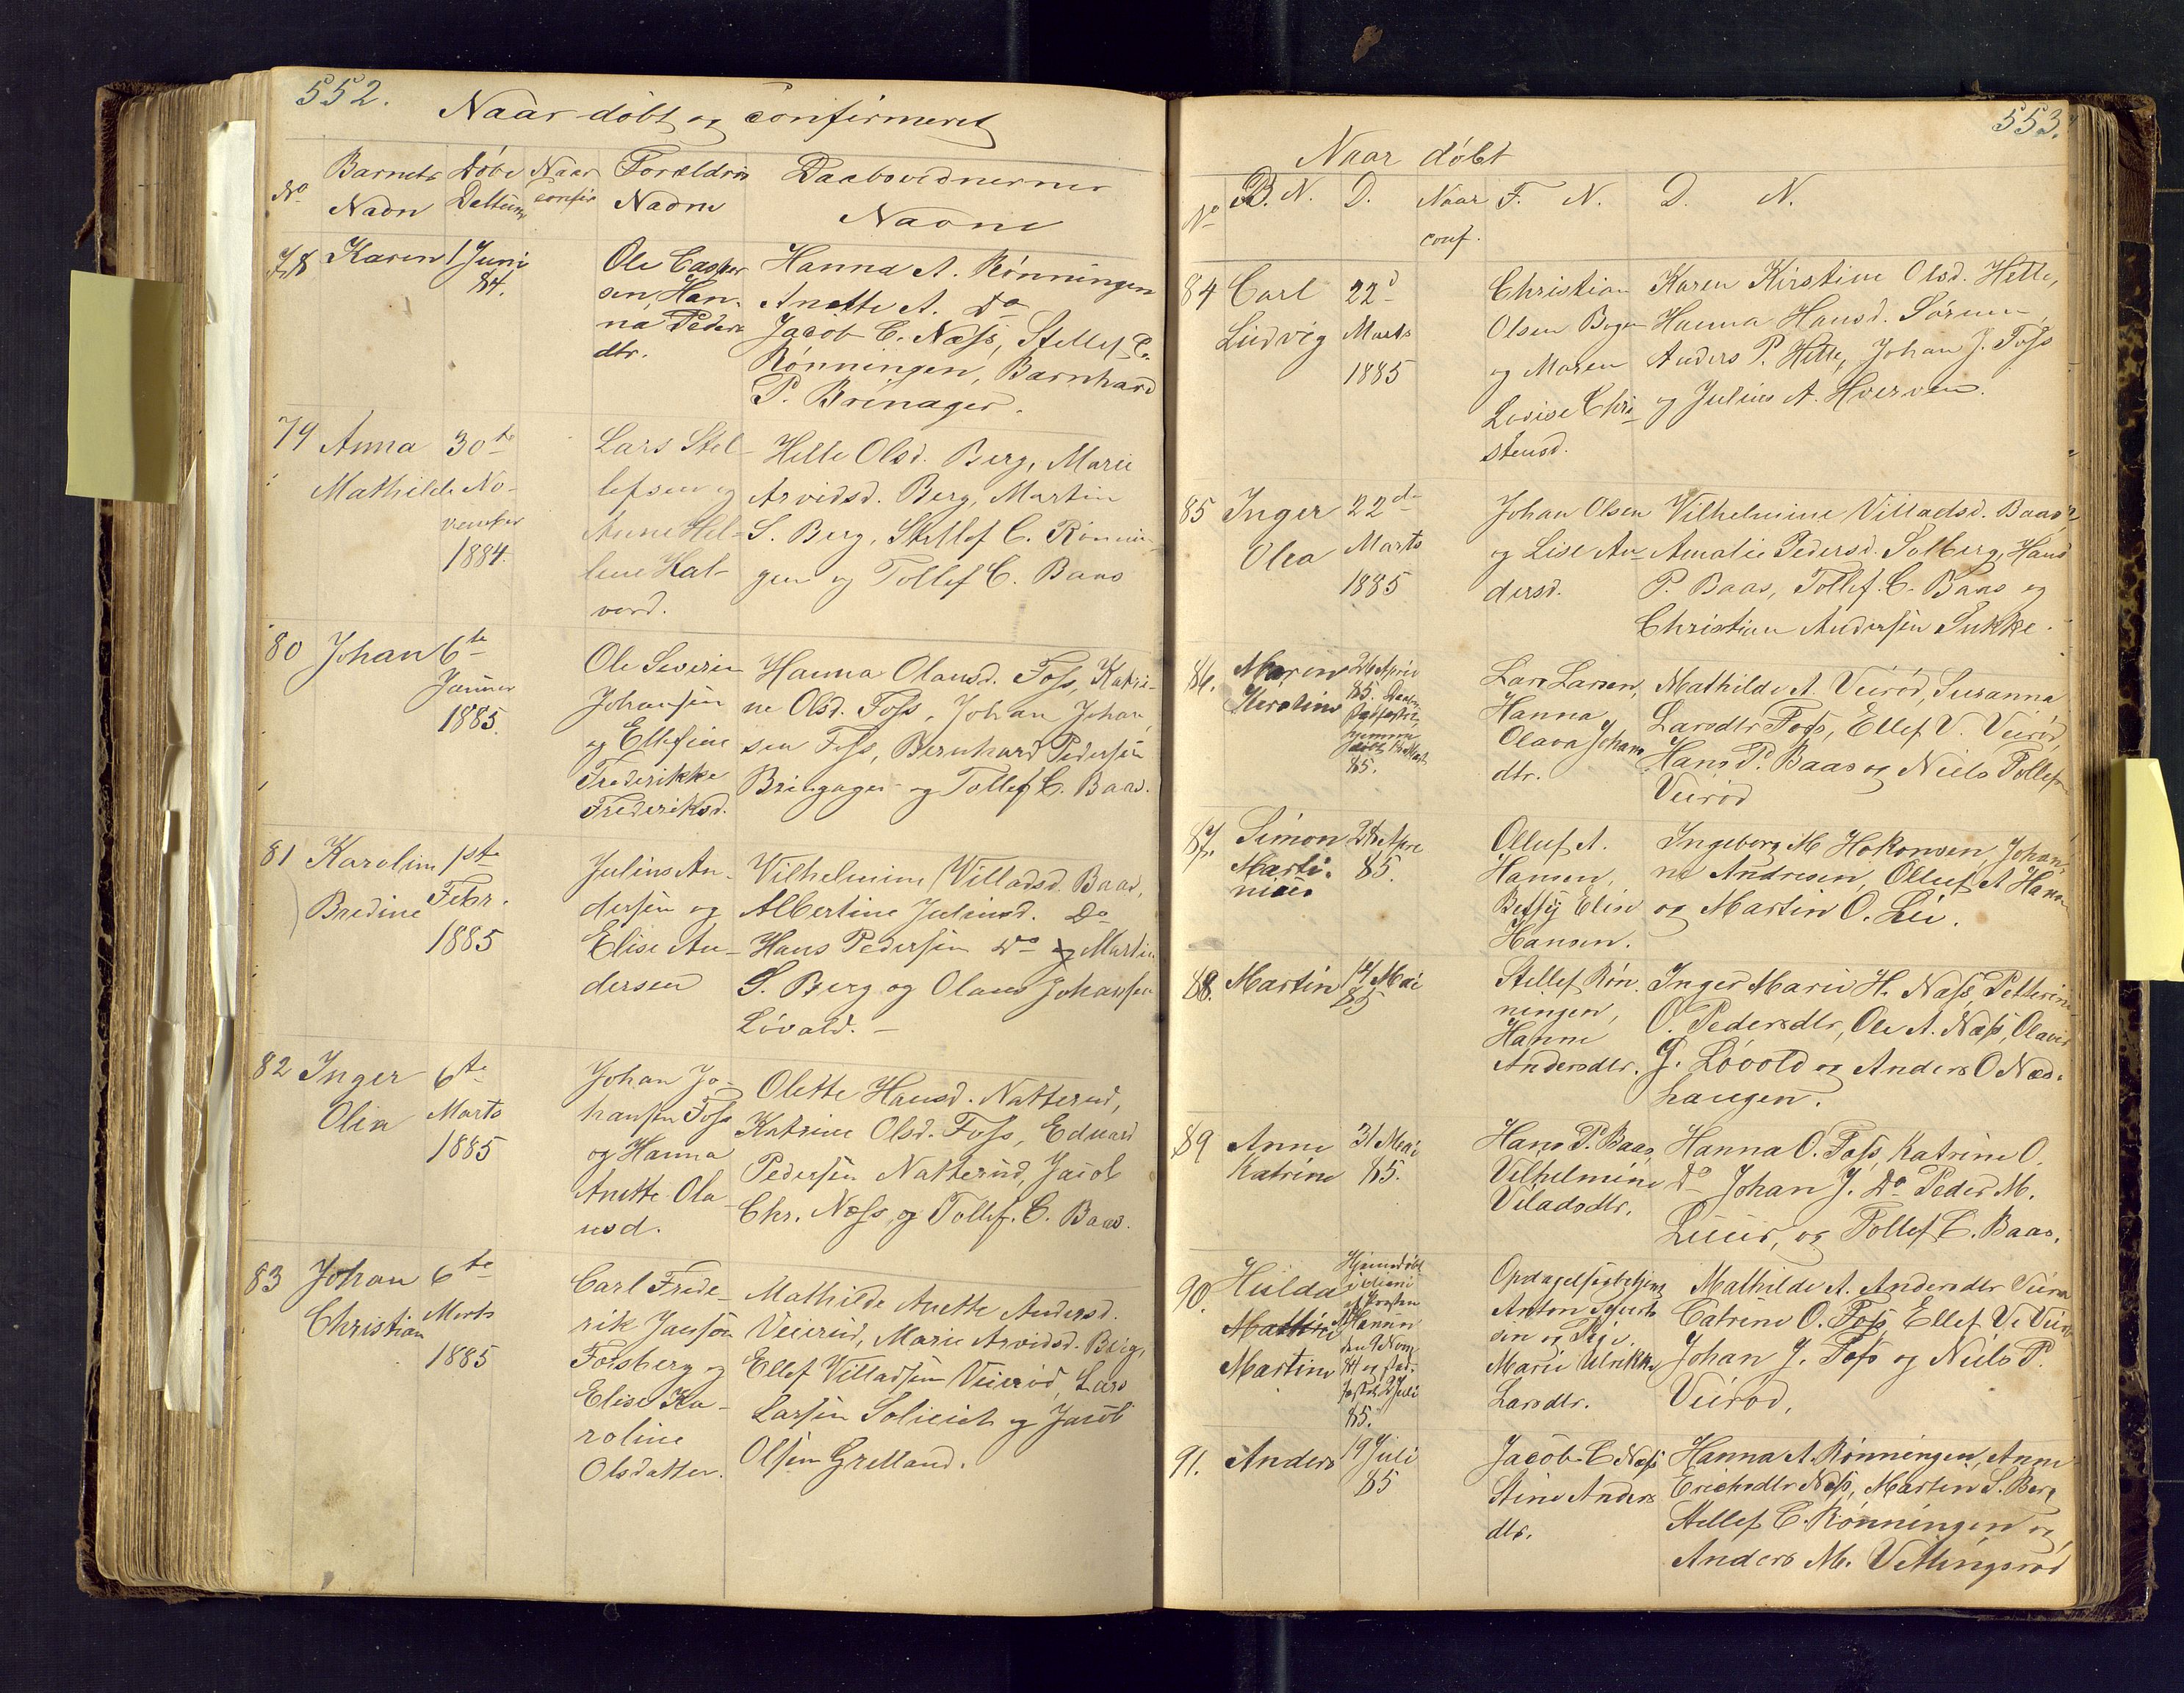 552.
Naar döbt og confirmeret
No Barnets Navn Döbs Dattum Naar confir Forældres Navne Daabsvidnernes Navne
78 Karen 1 Juni 84.
Ole Casper
sen, Han
na Peders
dtr.
Hanna A. Rönningen
Anette A. Do
Jacob C. Næss, Stellef C.
Rönningen, Barnhard
P. Bringager.
79 Anna Mathilde 30te November 1884.
Lars Stel-
lefsen og
Anne Hel-
lene Hal-
vord.
Helle Olsd. Berg, Marie
Arvidsd. Berg, Martin
S. Berg, Stellef C. Rönnin-
gen og Tollef C. Baas
80 Johan 6te Januar 1885.
Ole Severin
Johansen
og Ellefine
Frederikke
Frederiksd.
Hanna Olausd. Foss, Katri-
ne Olsd. Foss, Johan Johan
sen Foss, Bernhard Pedersen
Bringager og Tollef C. Baas.
81 Karoline Bredine 1ste Febr. 1885
Julius An-
dersen og
Elise An-
dersen
Vilhelmine Villadsd. Baas,
Albertine Juliusd. Do
Hans Pedersen Do og Martin
S. Berg og Olaus Johansen
Lövald. -
82 Inger Olia 6te Marts 1885
Johan Jo-
hansen Foss
og Hanna
Anette Ola
usd.
Olette Hansd. Natterud,
Katrine Olsd. Foss, Eduard
Pedersen Natterud, Jacob
Chr. Næss og Tollef. C. Baas.
83 Johan Christian 6te Marts 1885
Carl Frede-
rik Janson
Forsberg og
Elise Ka-
roline
Olsdatter.
Mathilde Anette Andersd.
Veierud, Marie Arvidsd. Berg,
Ellef Villadsen Veieröd, Lars
Larsen og Jacob
Olsen Grelland.
553.
Naar döbt
No B. N. D. Naar conf. F. N. D. N.
84 Carl Ludvig 22d Marts 1885
Christian
Olsen Bogen
og Maren
Lovise Chri
stensd.
Karen Kirstine Olsd. Hette,
Hanna Hansd. Sörum,
Anders P. Hette, Johan J. Foss
og Julius A. Hverven.
85 Inger Olea 22de Marts 1885
Johan Olsen
og Lise An-
dersd.
Vilhelmine Villadsd. Baas,
Amalie Pedersd. Solberg, Hans
P. Baas, Tollef. C. Baas og
Christian Andersen Sukke.
86. Maren Kirstine 26 April 85.
Lars Larsen,
Hanna
Olava Johans
dtr.
Mathilde A. Veiröd, Susanna
Larsdtr Foss, Ellef V. Veiröd,
Hans P. Baas og Niels Tollefs
Veiröd
87. Simon Martinius 26 Apre 85.
Olluf A.
Hansen,
Betsy Elin
Hansen.
Ingeborg M Hokonsen, Johan-
ne Andresen, Olluf A Hansen
og Martin O. Lie.
88. Martin 14 Mai 85
Stellef Rön
ningen,
Hanne
Andersdtr.
Inger Marie H. Næss, Petterine
O. Pedersdtr, Ole A. Næss, Olaves
J. Lövold og Anders O Næs-
haugen.
89 Anne Katrine 31 Mai 85.
Hans P. Baas,
Vilhelmine
Viladsdtr.
Hanna O. Foss, Katrine O.
Do Johan J. Do Peder M.
og Tollef C. Baas.
90. Hulda Mathie Martine Hjemmedöbt den 9 Nov 84 og stad- 2 Juli 85.
Anton Sjurts
sen og
Marie Ulrikke
Larsdtr.
Mathilde A. Andersdtr
Catrine O. Foss Ellef V.
Johan J. Foss og Niels P.
Veiröd.
91. Anders 19 Juli 85
Jacob C Næss
Stine Anders
dtr.
Hanna A. Rönningen, Anne
Erichsdtr Næss, Martin S. Berg
Stellef C. Rönningen og
Anders M. Vettingsrud